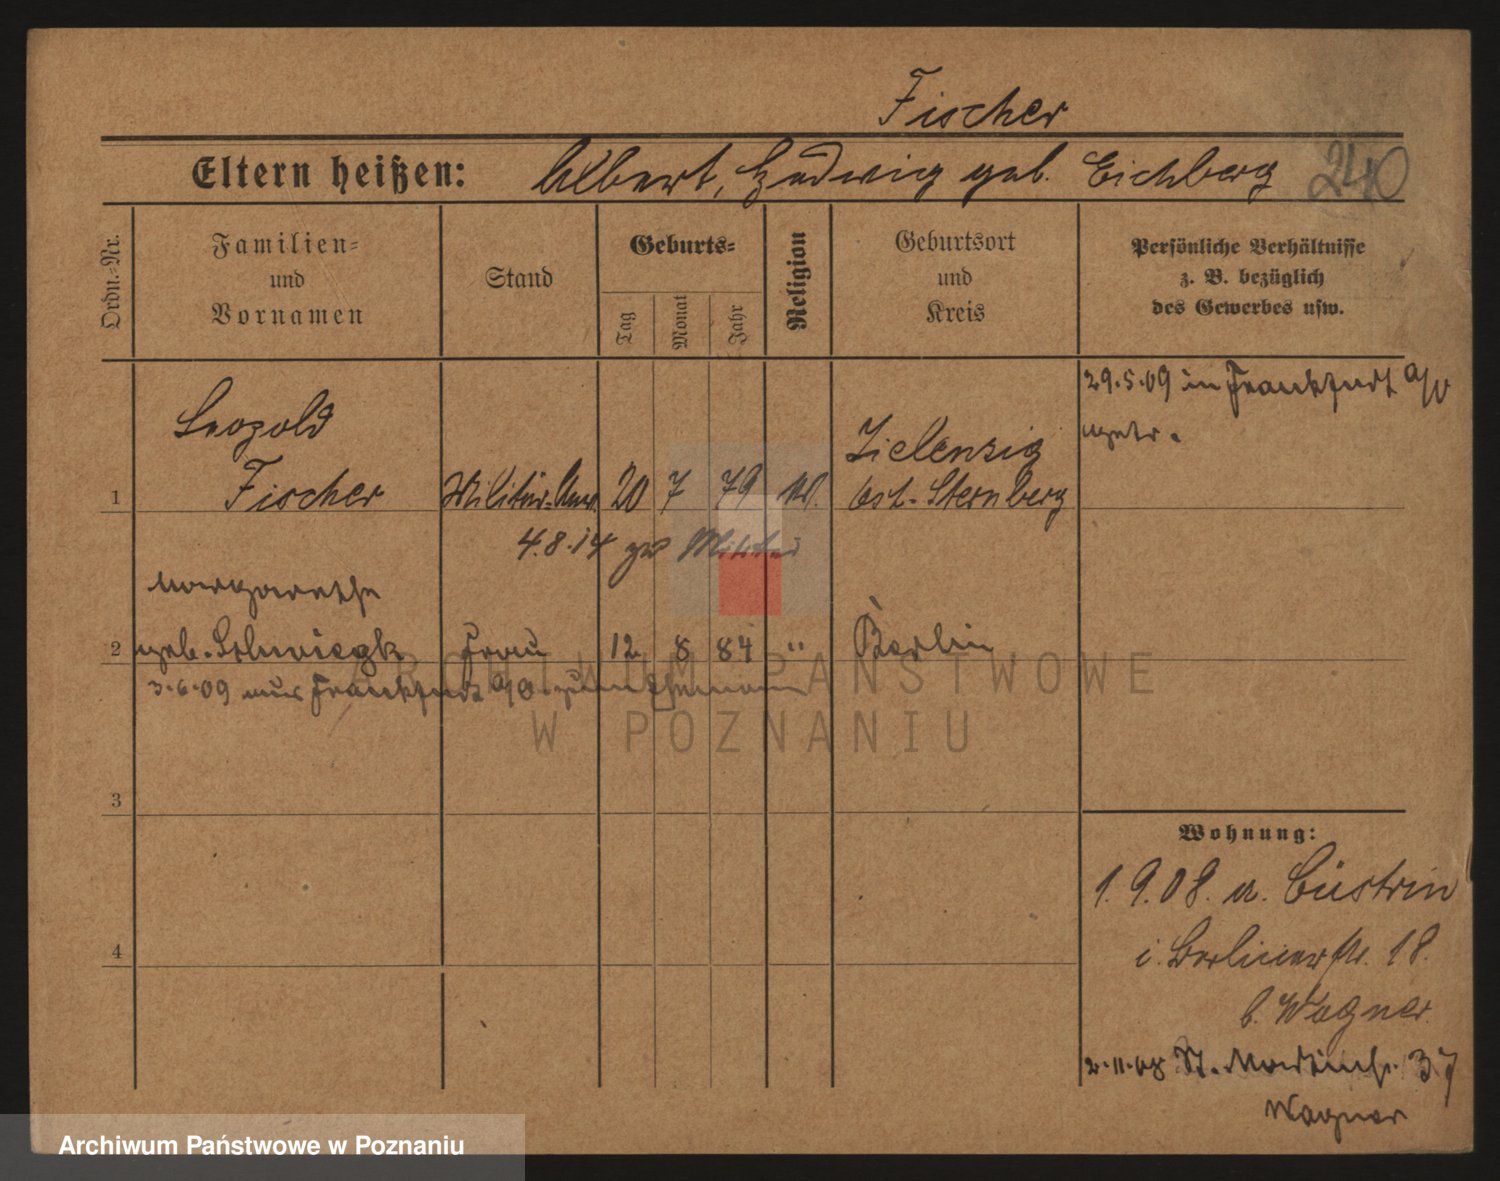 Fischer
Eltern heißen: Albert, Hedwig geb. Eichberg
240
Ordn.-Nr.
Familien-
und
Vornamen
Stand
Geburts-
Tag
Monat
Jahr
Religion
Geburtsort
und
Kreis
Persönliche Verhältnisse
z. B. bezüglich
des Gewerbes usw.
29.5.09 in Frankfurt a/O
getr.
Leopold
1 Fischer Militär-Anw. 20 7 79 Zielenzig
Ost-Sternberg
4.8.14 zum Militär
Margarethe
2 geb. Frau 12 8 84 " Berlin
3.6.09 aus Frankfurt a/O zum Ehemann
3
4
Wohnung:
1.9.08. a. Cüstrin
i. Berlinerstr. 18.
b. Wagner.
2.11.08 St. Martinstr. 37
Wagner
ARCHIWUM PAŃSTWOWE
W POZNANIU
Archiwum Państwowe w Poznaniu